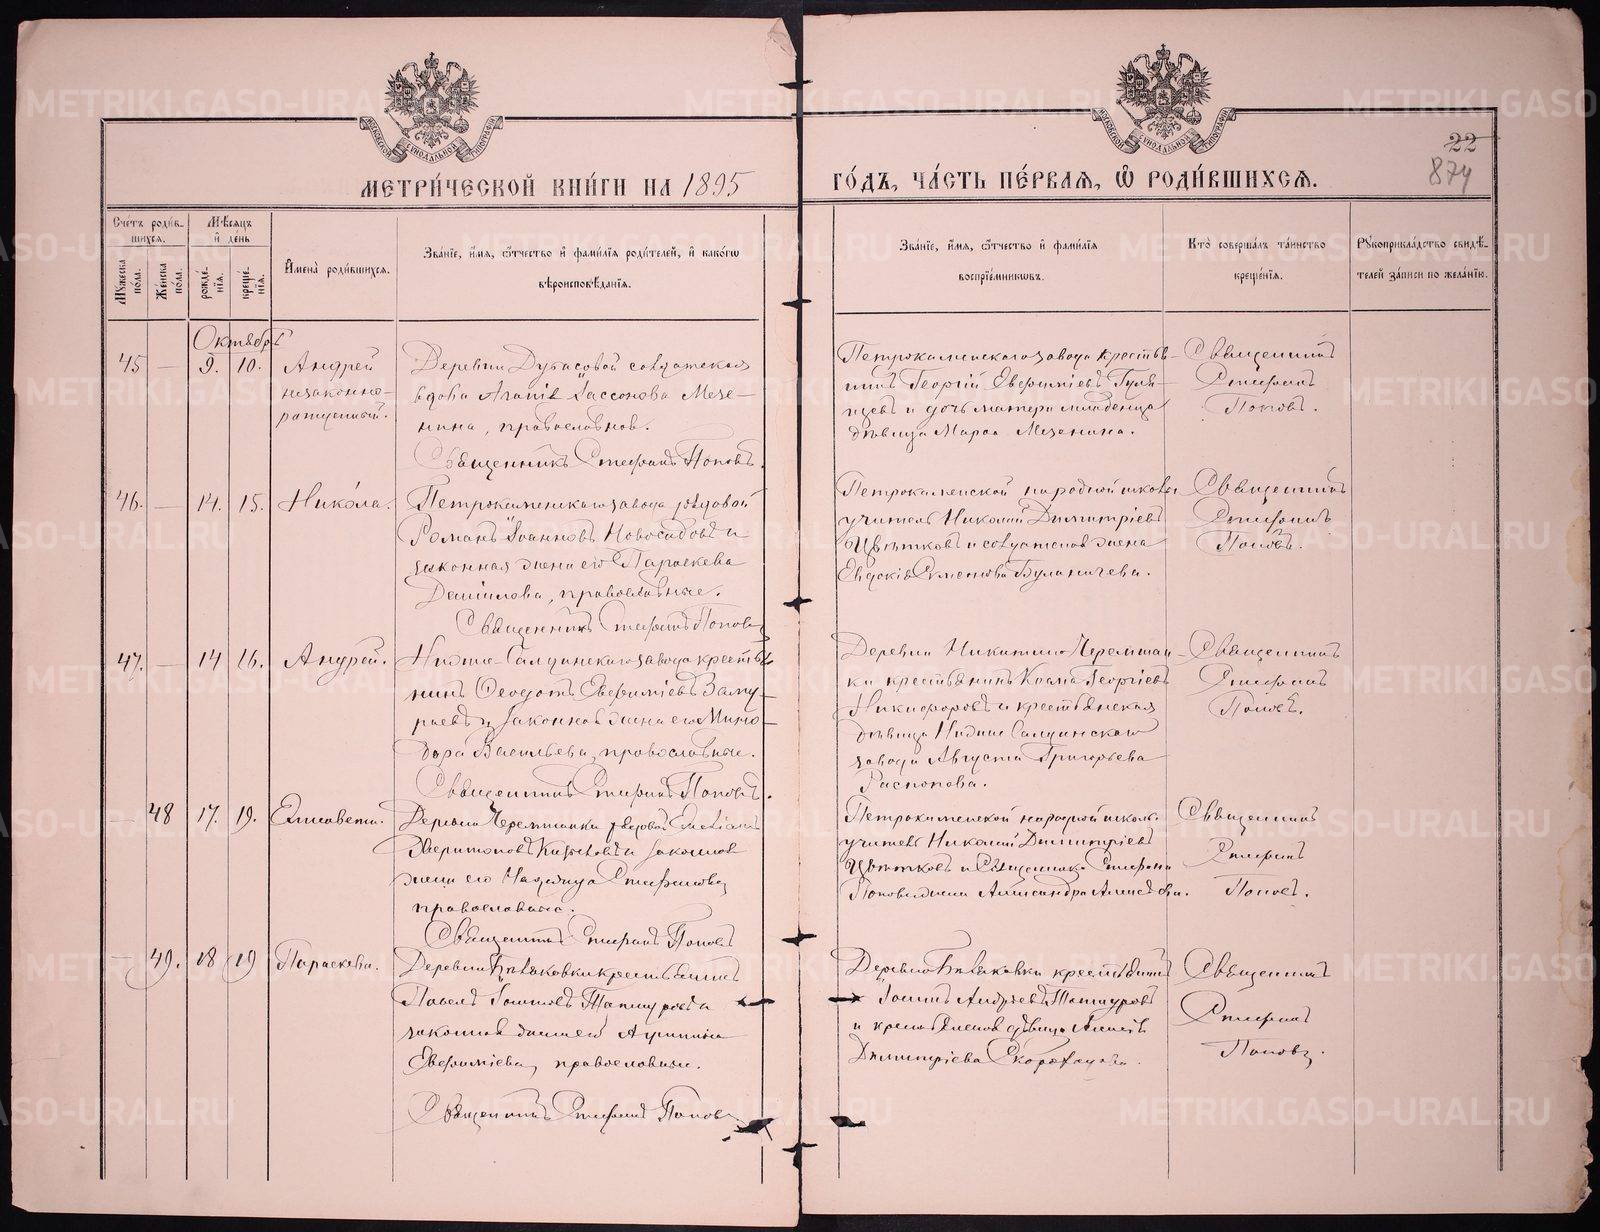 МЕТРИ́ЧЕСКОЙ КНИ́ГИ НА 1895
ГО́ДЪ, ЧА́СТЬ ПЕ́РВАЯ, Ѡ РОДИ́ВШИХСЯ.
22
874
Счетъ роди́вшихся.
Мѣсяцъ и́ де́нь
Мꙋжеска по́ла.
Же́нска по́ла.
рожде́нїя.
креще́нїя.
И҆мена̀ роди́вшихся.
Зва́нїе, и҆́мя, ѻ҆́тчество и҆ фами́лїя роди́телей, и҆ како́гѡ
вѣроисповѣ́данїя.
Зва́нїе, и҆́мя, ѻ҆́тчество и҆ фами́лїя
воспрїе́мникѡвъ.
Кто̀ соверша́лъ та́инство
креще́нїя.
Рꙋкоприкла́дство свидѣ́телей за́писи по жела́нїю.
Октябрь
45 — 9. 10. Андрей
незаконно-
рожденный.
Деревни Дубасовой солдатская
вдова Агапія Іассонова Мезе-
нина, православной.
Священникъ Стефанъ Поповъ.
Петрокаменскаго завода крестья-
нинъ Георгій Евфиміевъ
и дочь матери младенца
дѣвица Марѳа Мезенина.
Священникъ
Стефанъ
Поповъ.
46. — 14. 15. Никола.
Петрокаменскаго завода рядовой
Романъ Іоанновъ Новосадовъ и
законная жена его Параскева
Данилова, православные.
Священникъ Стефанъ Поповъ
Петрокаменской народной школы
учитель Николай Димитріевъ
Цвѣтковъ и солдатская жена
Евдокія
Священникъ
Стефанъ
Поповъ.
47. — 14 16. Андрей.
Нижне-Салдинскаго завода крестья-
нинъ Ѳеодотъ Евфиміевъ Заму-
раевъ и законная жена его Мино-
дора Васильева, православные.
Священникъ Стефанъ Поповъ.
Деревни Никитино Черемшан-
ки крестьянинъ Георгіевъ
Никифоровъ и крестьянская
дѣвица Нижне Салдинскаго
завода Августа Григорьева
Распопова.
Священникъ
Стефанъ
Поповъ.
— 48 17. 19. Елисавета.
Деревни Черемшанки рядовой
и законная
жена его Надежда Стефанова,
православные.
Священникъ Стефанъ Поповъ
Петрокаменской народной школы
учитель Николай Димитріевъ
Цвѣтковъ и Священника Стефана
Попова жена Александра Алексѣева.
Священникъ
Стефанъ
Поповъ.
— 49. 18 19 Параскева.
Деревни Бѣляковки крестьянинъ
Павелъ Іоанновъ и
законная жена его
Евфиміева, православные.
Священникъ Стефанъ Поповъ
Деревни Бѣляковки крестьянинъ
Іоаннъ Андреевъ
и крестьянская дѣвица
Димитріева
Священникъ
Стефанъ
Поповъ.
METRIKI.GASO-URAL.RU